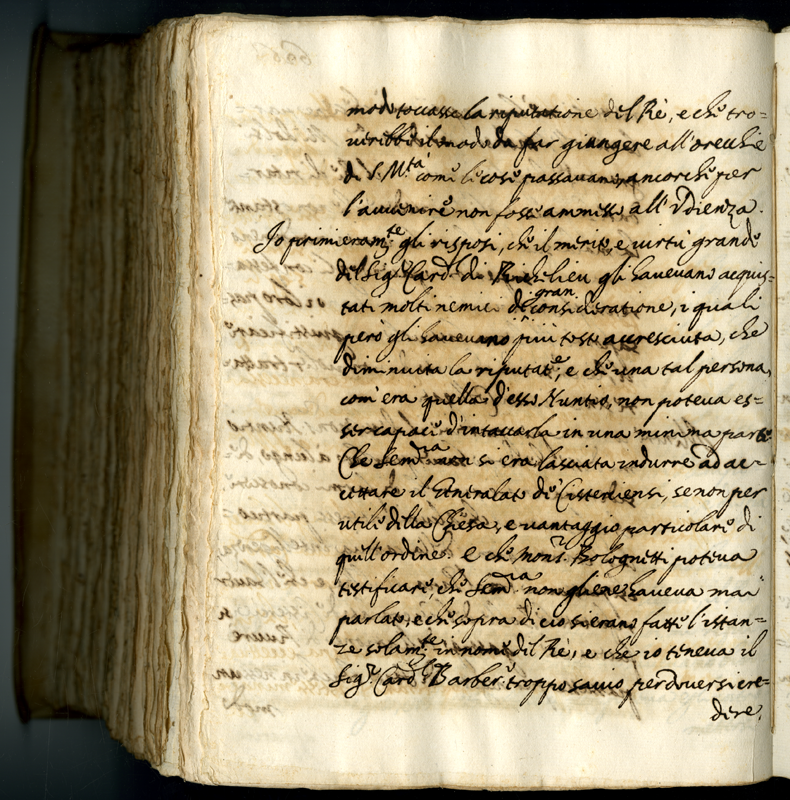 modo toccasse la riputatione del Rè, e che tro=
verebbe il modo da far giungere all'orecchie
di S. M.tà come le cose passavano, ancorche per
l'avvenire non fosse ammesso all'Vdienza.
Io primieram.te gli risposi, che il merito, e virtù grande
del Sig.r Card. di Richilieu gli havevano acquis=
tati molti nemici di gran consideratione, i quali
però gli havevano più tosto accresciuta, che
diminuita la riputat.e, e che una tal persona,
com'era quella d'esso Nuntio, non poteva es=
ser capace d'intaccarla in una minima parte
Che Sem.za non si era lasciata indurre ad ac=
cettare il Generalato de Cisterciensi, se non per
utile della Chiesa, e vantaggio particolare di
quell'ordine. E che Mons.r Bolognetti poteva
testificare, che Sem.za non gliene haveva mai
parlato, e che sopra di ciò si erano fatte l'istan=
ze solam.te in nome del Rè, e che io teneva il
Sig.r Card.l Barber. troppo savio per doversi cre=
dere,